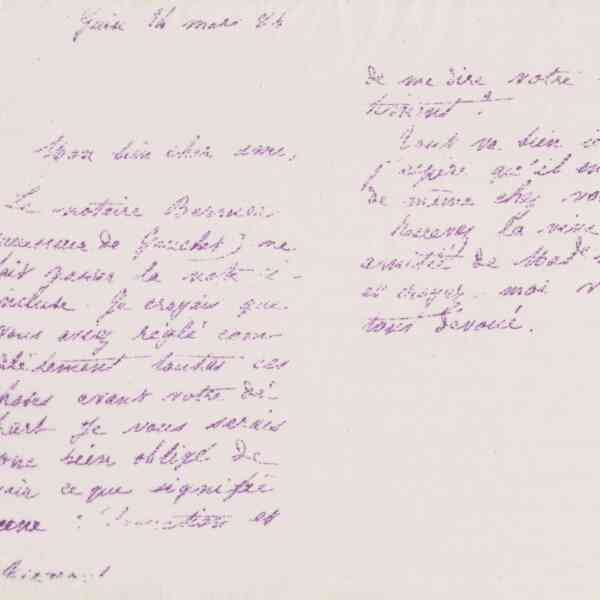 Guise 14 mars
Mon bien cher ami,
Le notaire
successeur de Gauchet) me
fait passer la note ci-
incluse. Je croyais que
vous aviez réglé com-
plètement toutes ces
choses avant votre dé-
part. Je vous serais
donc bien obligé de
voir ce que signifie
cette réclamation et
de me dire votre
sentiment.
Tout va bien ici
j'espère qu'il en
de même chez vous
Recevez la vive
amitié de Made
et croyez-moi
tout dévoué.